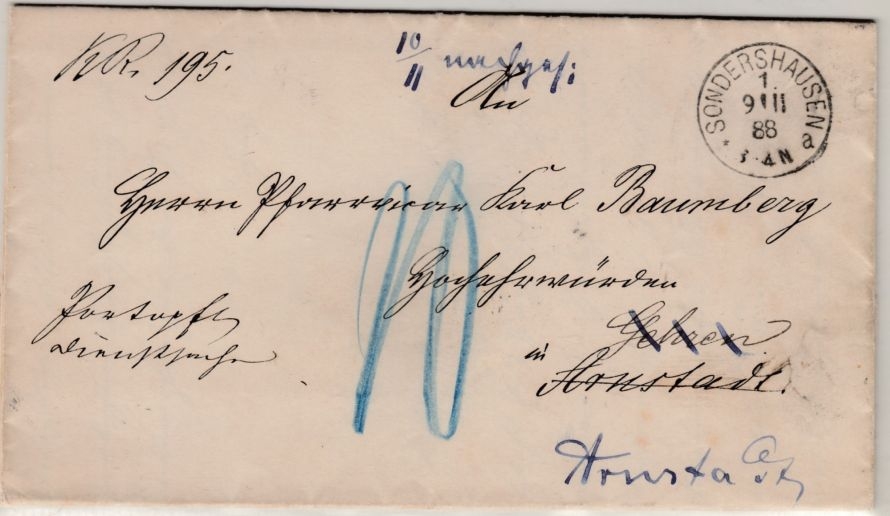 KR. 195.
10/11 nachges:
An
SONDERSHAUSEN
1.
9 11
88
* 3-4N a
Herrn Pfarrvicar Karl Baumberg
Hochehrwürden
Portopfl.
Dienstsache
10
Gehren
in
Arnstadt.
Arnstadt